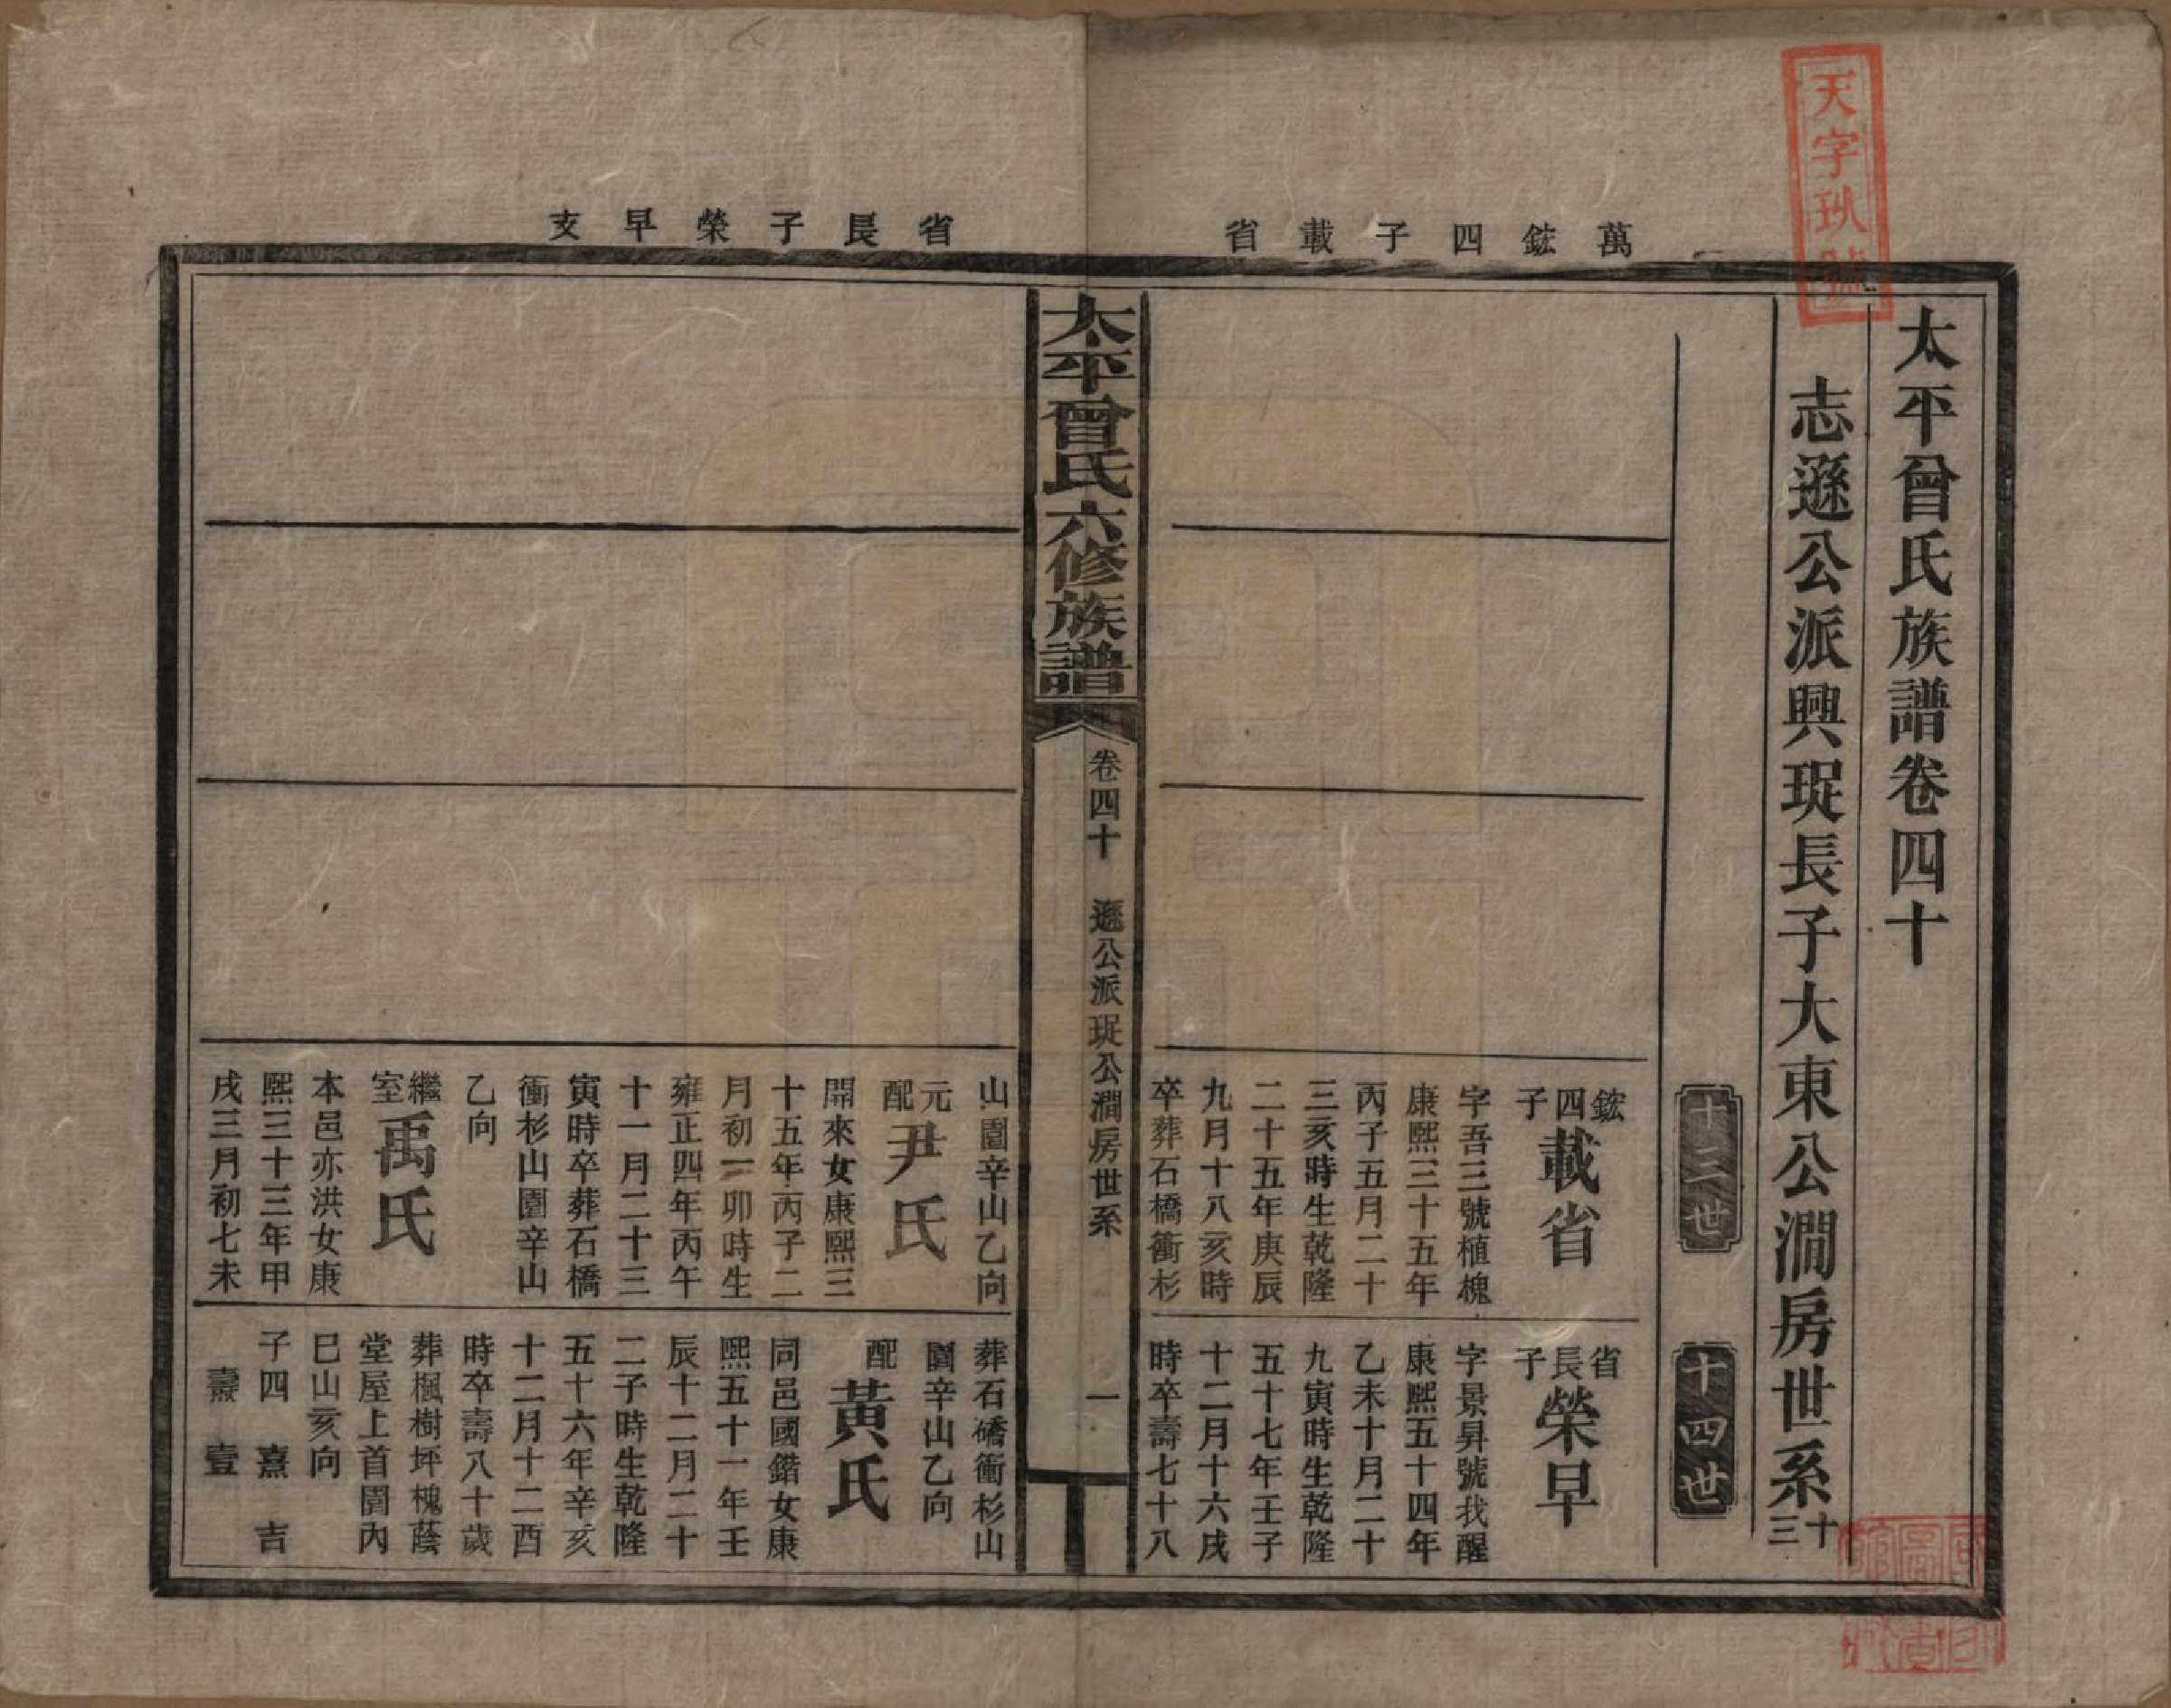 天字玖號
太平曾氏族譜卷四十
志遜公派興珽長子大東公澗房世系十三
十三世
十四世
萬鋐四子載省
鋐四子載省
字吾三號植槐
康熙三十五年
丙子五月二十
三亥時生乾隆
二十五年庚辰
九月十八亥時
卒葬石橋衝杉
省長子榮早
字景昇號我醒
康熙五十四年
乙未十月二十
九寅時生乾隆
五十七年壬子
十二月十六戌
時卒壽七十八
太平曾氏六修族譜
卷四十 遜公派珽公澗房世系
一
省長子榮早支
山圍辛山乙向
元配尹氏
開來女康熙三
十五年丙子二
月初一卯時生
雍正四年丙午
十一月二十三
寅時卒葬石橋
衝杉山圍辛山
乙向
繼室禹氏
本邑亦洪女康
熙三十三年甲
戌三月初七未
葬石橋衝杉山
圍辛山乙向
配黃氏
同邑國鍇女康
熙五十一年壬
辰十二月二十
二子時生乾隆
五十六年辛亥
十二月十二酉
時卒壽八十歲
葬楓樹坪槐蔭
堂屋上首圍內
巳山亥向
子四 熹 吉
燾 壹